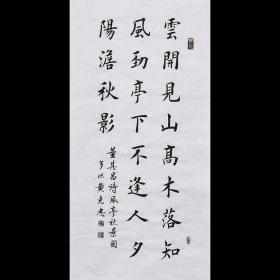 雲開見山高木落知
風勁亭下不逢人夕
陽澹秋影
董其昌詩風亭秋景圖